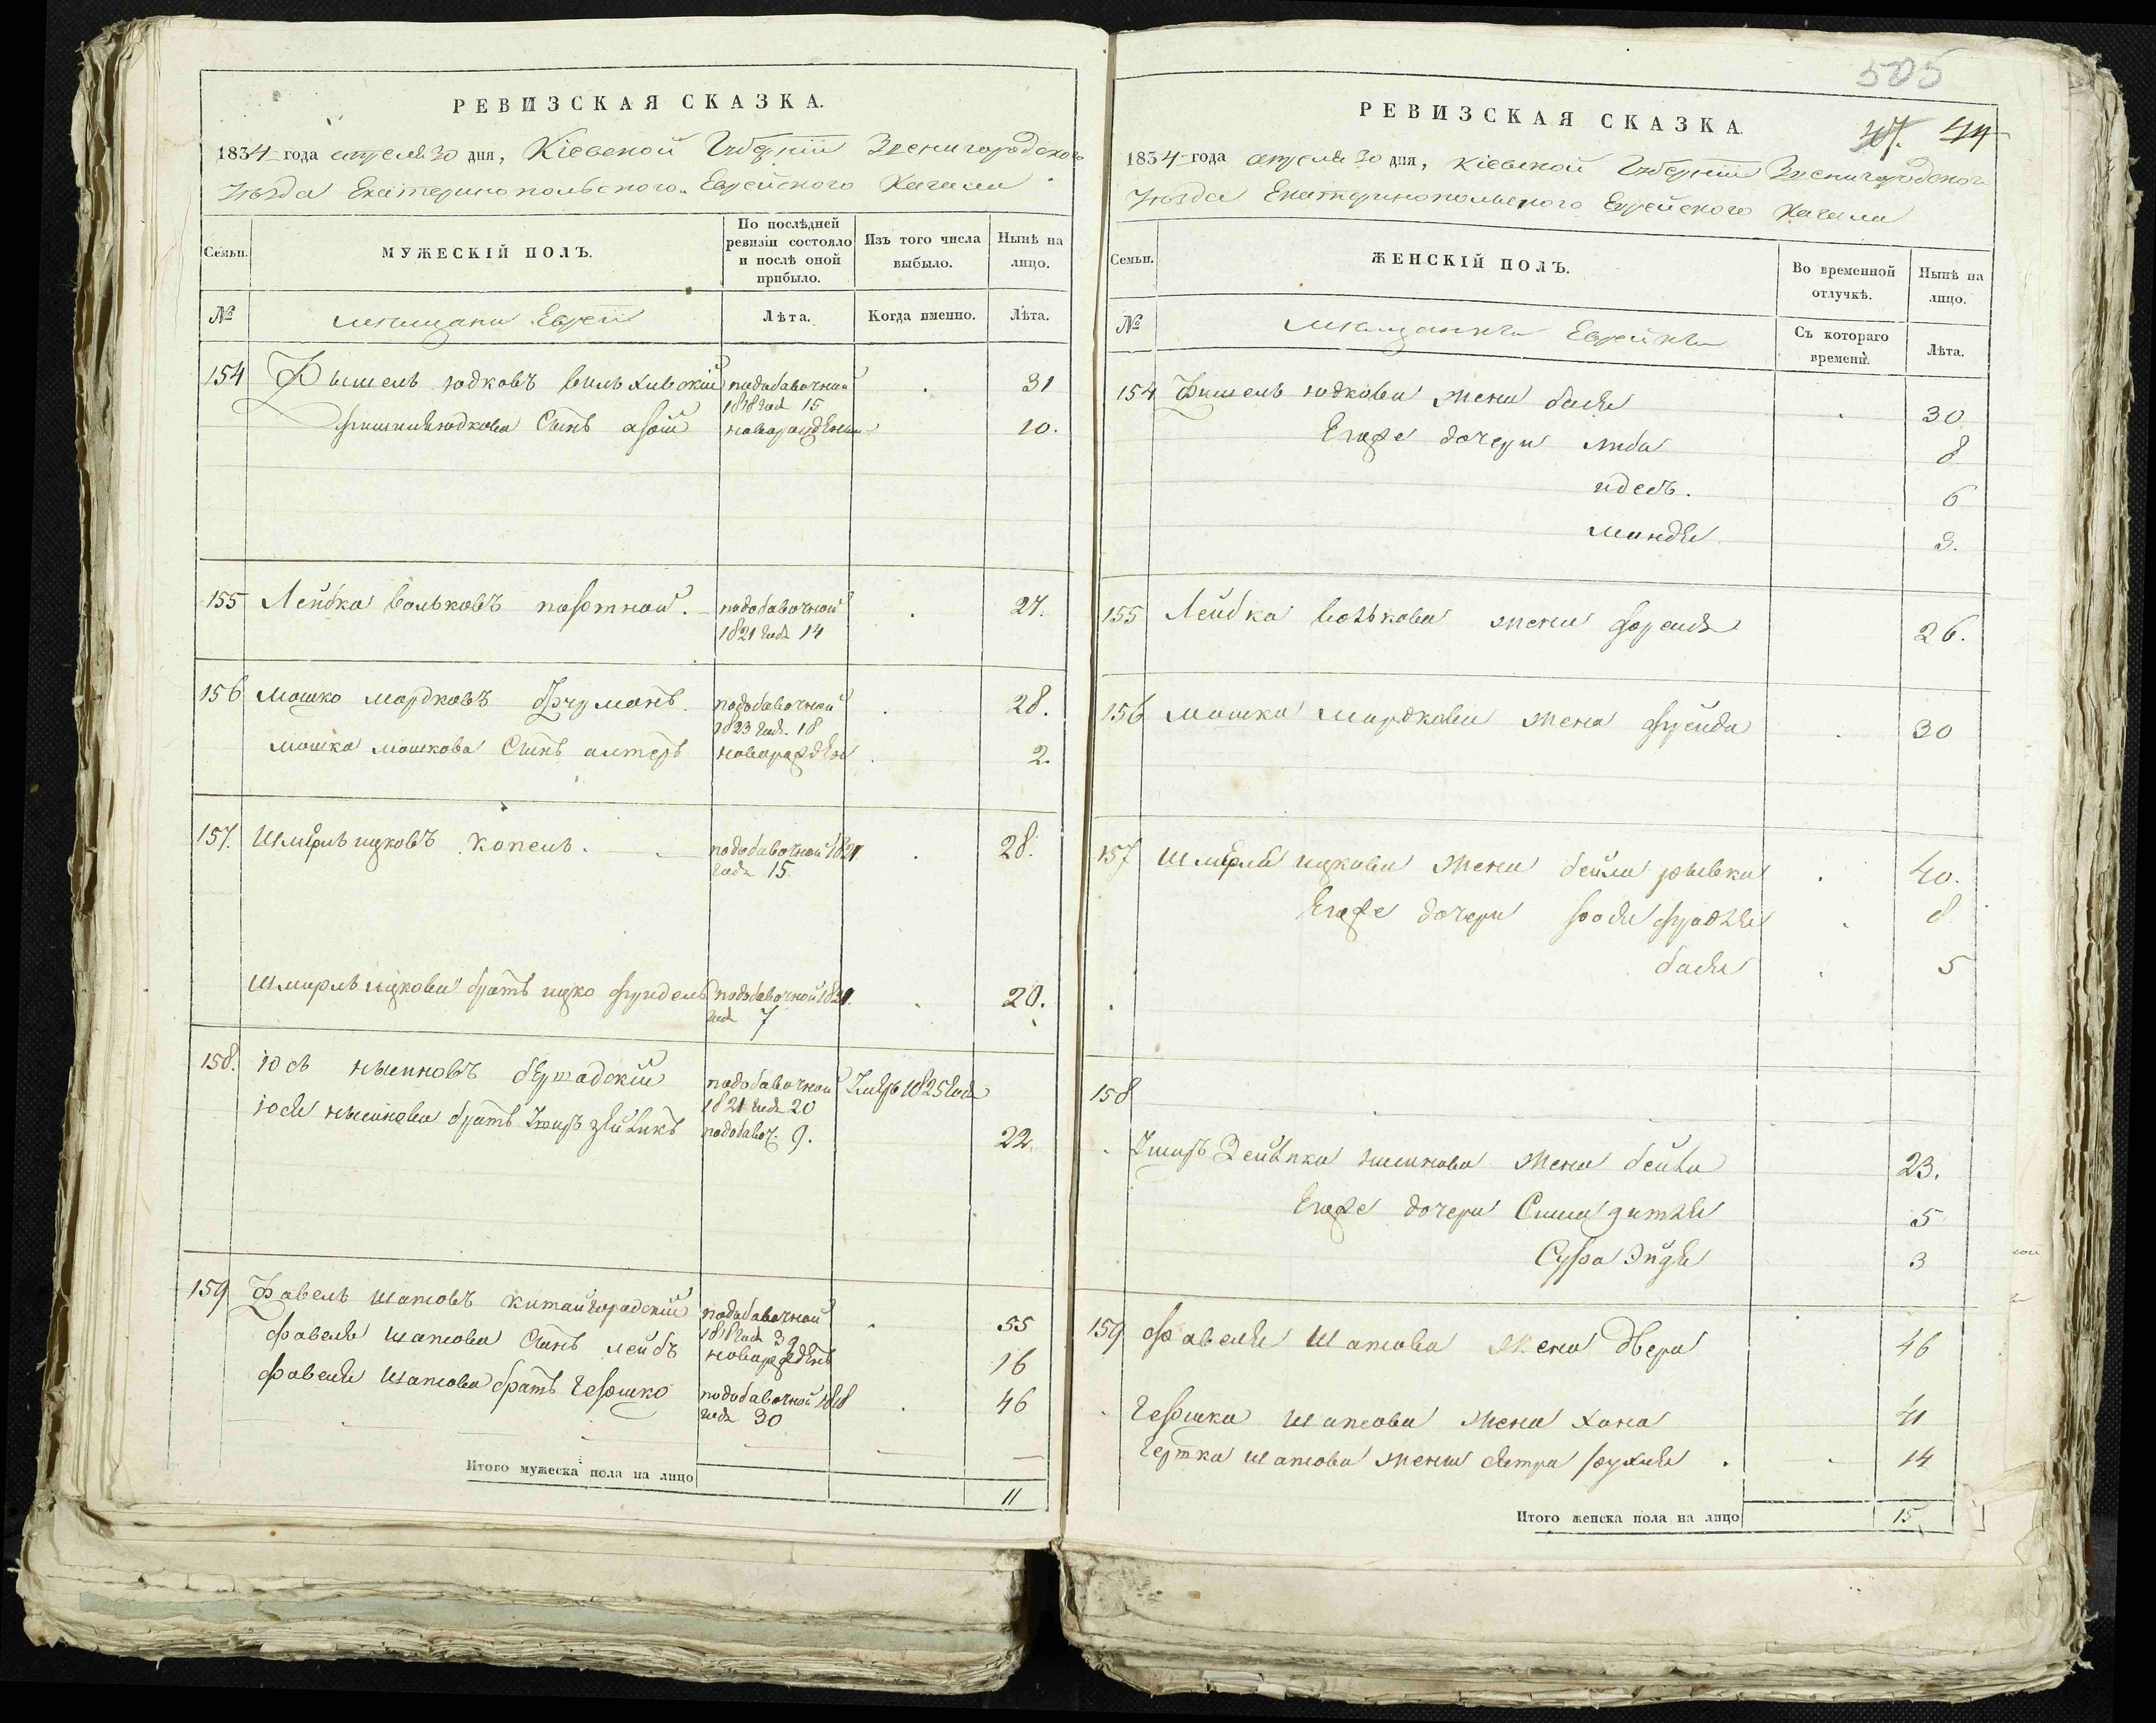 РЕВИЗСКАЯ СКАЗКА.
1834 года апреля 30 дня, Кіевской Губерніи Звенигородского
Уѣзда Екатеринопольского Еврейского Кагала
Семьи.
МУЖЕСКІЙ ПОЛЪ.
По послѣдней ревизіи состояло и послѣ оной прибыло.
Изъ того числа выбыло.
Нынѣ на лицо.
№
мещани Евреи
Лѣта.
Когда именно.
Лѣта.
154 Фышель юдковъ подобавочной 31
1818 года 15
юдкова Сынъ новорожденн 10.
155 Лейбка вольковъ подобавочной 27.
1821 года 14
156 Мошко мордковъ Фурманъ подобавочной 28.
1823 года 18
мошка мошкова Сынъ алтеръ новорожден 2.
157. Шмерль ицковъ копель. подобавочной 1821 28.
года 15.
Шмерль ицкова братъ ицко фридель подобавочной 1821. 20.
года 7
158. іось бершадскій подобавочной 1825 года
1821 года 20
братъ подобавоч. 9. 22
159 Фавель шаповъ китайгородскій подобавочной 55
1818 года 39
фавеля шапова Сынъ лейбъ новорожденъ 16
фавеля шапова братъ гершко подобавочной 1818 46
года 30
Итого мужеска пола на лицо 11
505
РЕВИЗСКАЯ СКАЗКА.
47. 44
1834 года апреля 30 дня, Кіевской Губерніи Звенигородского
Уѣзда Екатеринопольского Еврейского Кагала
Семьи.
ЖЕНСКІЙ ПОЛЪ.
Во временной отлучкѣ.
Нынѣ на лицо.
№
мещанки Еврейки
Съ котораго времени.
Лѣта.
154 Фишель юдкова жена бася 30
Егоже дочери люба 8
идесъ. 6
мандя 3.
155 Лейбка волькова жена 26.
156 мошка мордкова жена фрейда 30
157 шмерля ицкова жена бейла рывка 40.
Егоже дочери 8
бася 5
158
жена бейла 23.
Егоже дочери 5
Сура 3
159 фавеля шапова жена двера 46
гершка шапова жена хана 41
шапова жена 14
Итого женска пола на лицо 15